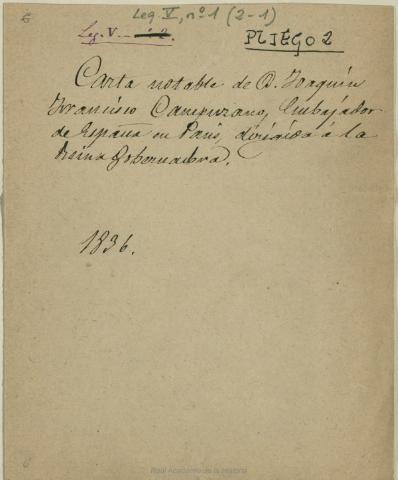 Leg. V, nº 1 (2-1)
Leg. V.
PLIEGO 2
Carta notable de D. Joaquin
Francisco Campuzano, Embajador
de España en Paris, dirigida á la
Reina Gobernadora.
1836.
Real Academia de la Historia